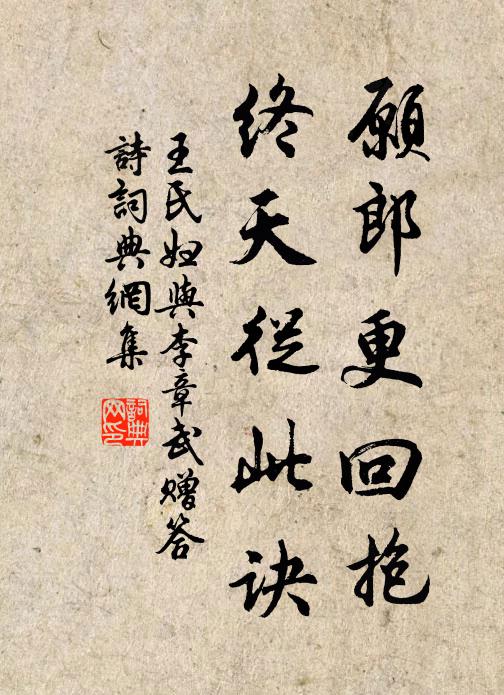 願郎更回抱
終天從此訣
王氏婦與李章武贈答
詩詞典網集
詞典網印